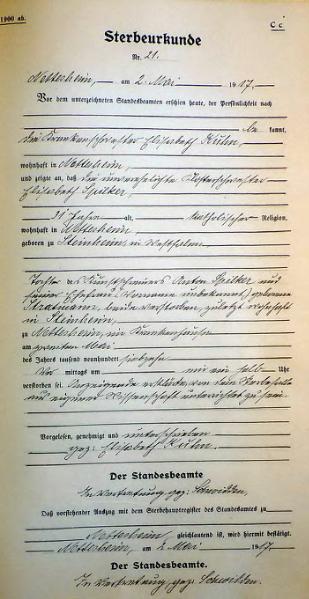 1900 ab.
C c
Sterbeurkunde
Nr. 21.
Netterheim, am 2. Mai 1917.
Vor dem unterzeichneten Standesbeamten erschien heute, der Persönlichkeit nach
be kannt,
die Krankenschwester Elisabeth Kühn,
wohnhaft in Netterheim,
und zeigte an, daß die unverehelichte Klosterschwester
Elisabeth Spilker,
31 Jahre alt, katholischer Religion,
wohnhaft in Netterheim
geboren zu Steinheim, in Westfalen
Tochter des Anton Spilker und
seiner Ehefrau (Vorname unbekannt) geborene
beide verstorben, zuletzt wohnhaft
in Steinheim,
zu Netterheim, im Krankenhause
am zweiten Mai
des Jahres tausend neunhundert siebzehn
Vor mittags um ein halb Uhr
verstorben sei. Anzeigende erklärte, von dem Sterbefalle
aus eigener Wissenschaft unterrichtet zu sein.
Vorgelesen, genehmigt und unterschrieben
gez: Elisabeth Kühn.
Der Standesbeamte
In Vertretung, gez:
Daß vorstehender Auszug mit dem Sterbehauptregister des Standesamtes zu
Netterheim, gleichlautend ist, wird hiermit bestätigt.
Netterheim, am 2. Mai 1917.
Der Standesbeamte.
In Vertretung, gez: